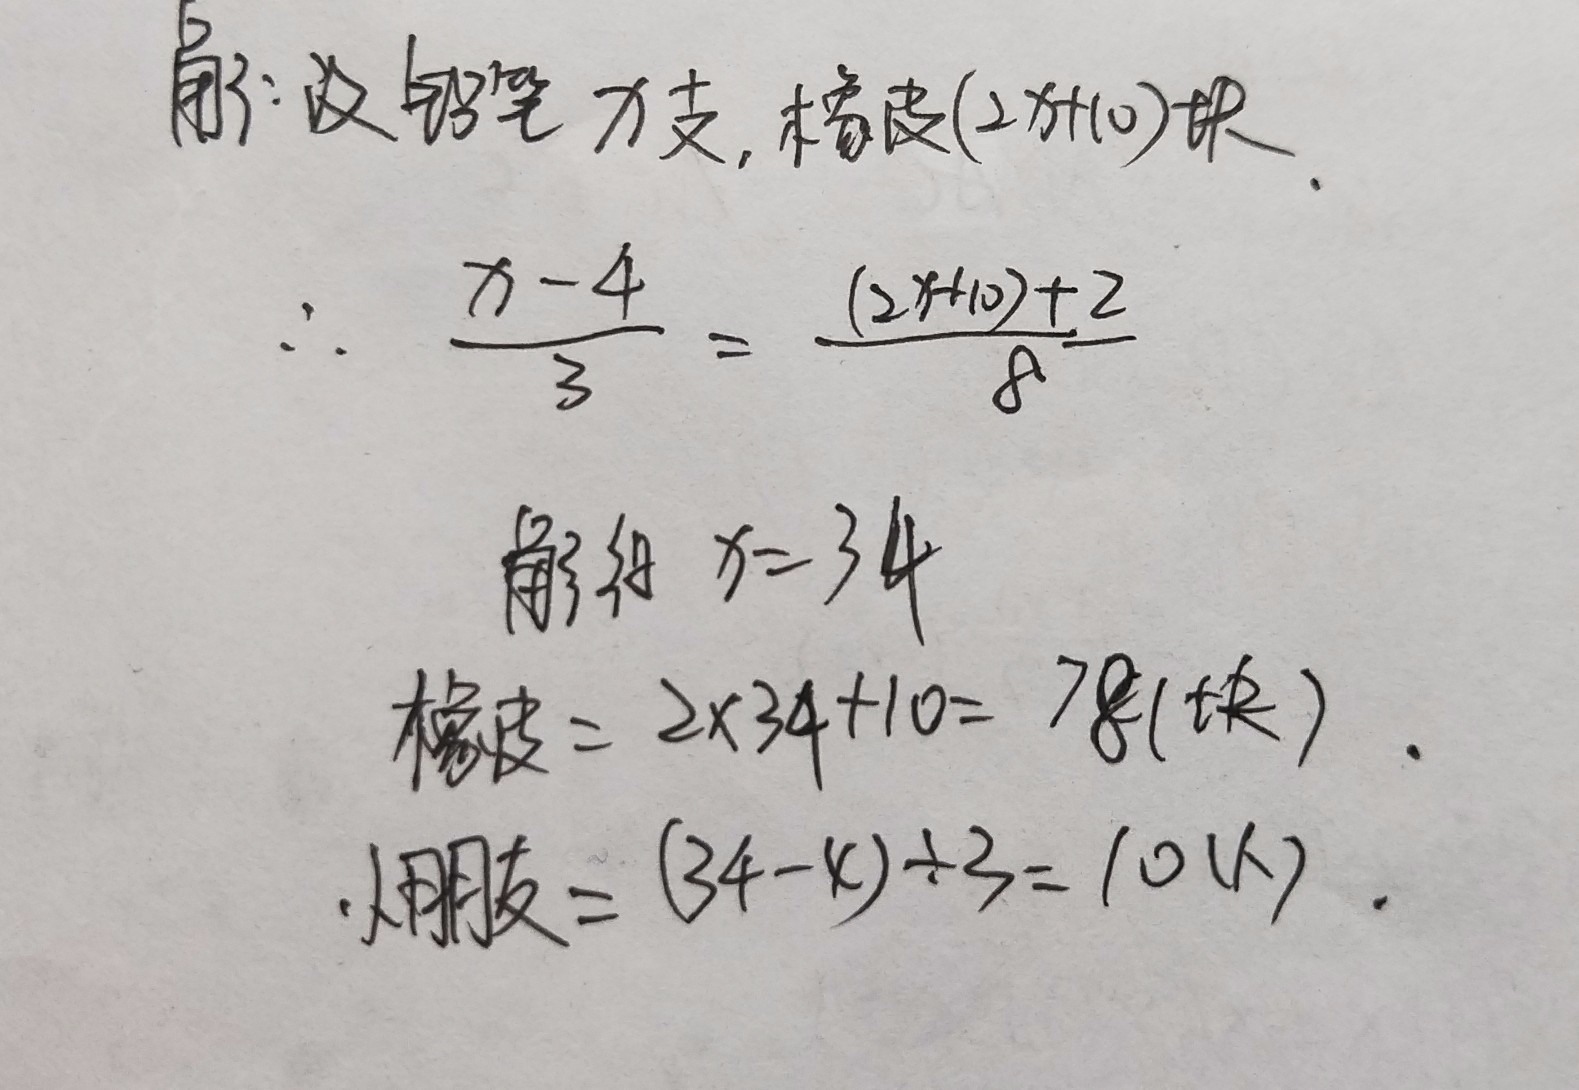 解:设铅笔x支,橡皮(2x+10)块.
∴ (x-4)/3 = ((2x+10)+2)/8
解得 x=34
橡皮=2×34+10=78(块).
小朋友=(34-4)÷3=10(人).